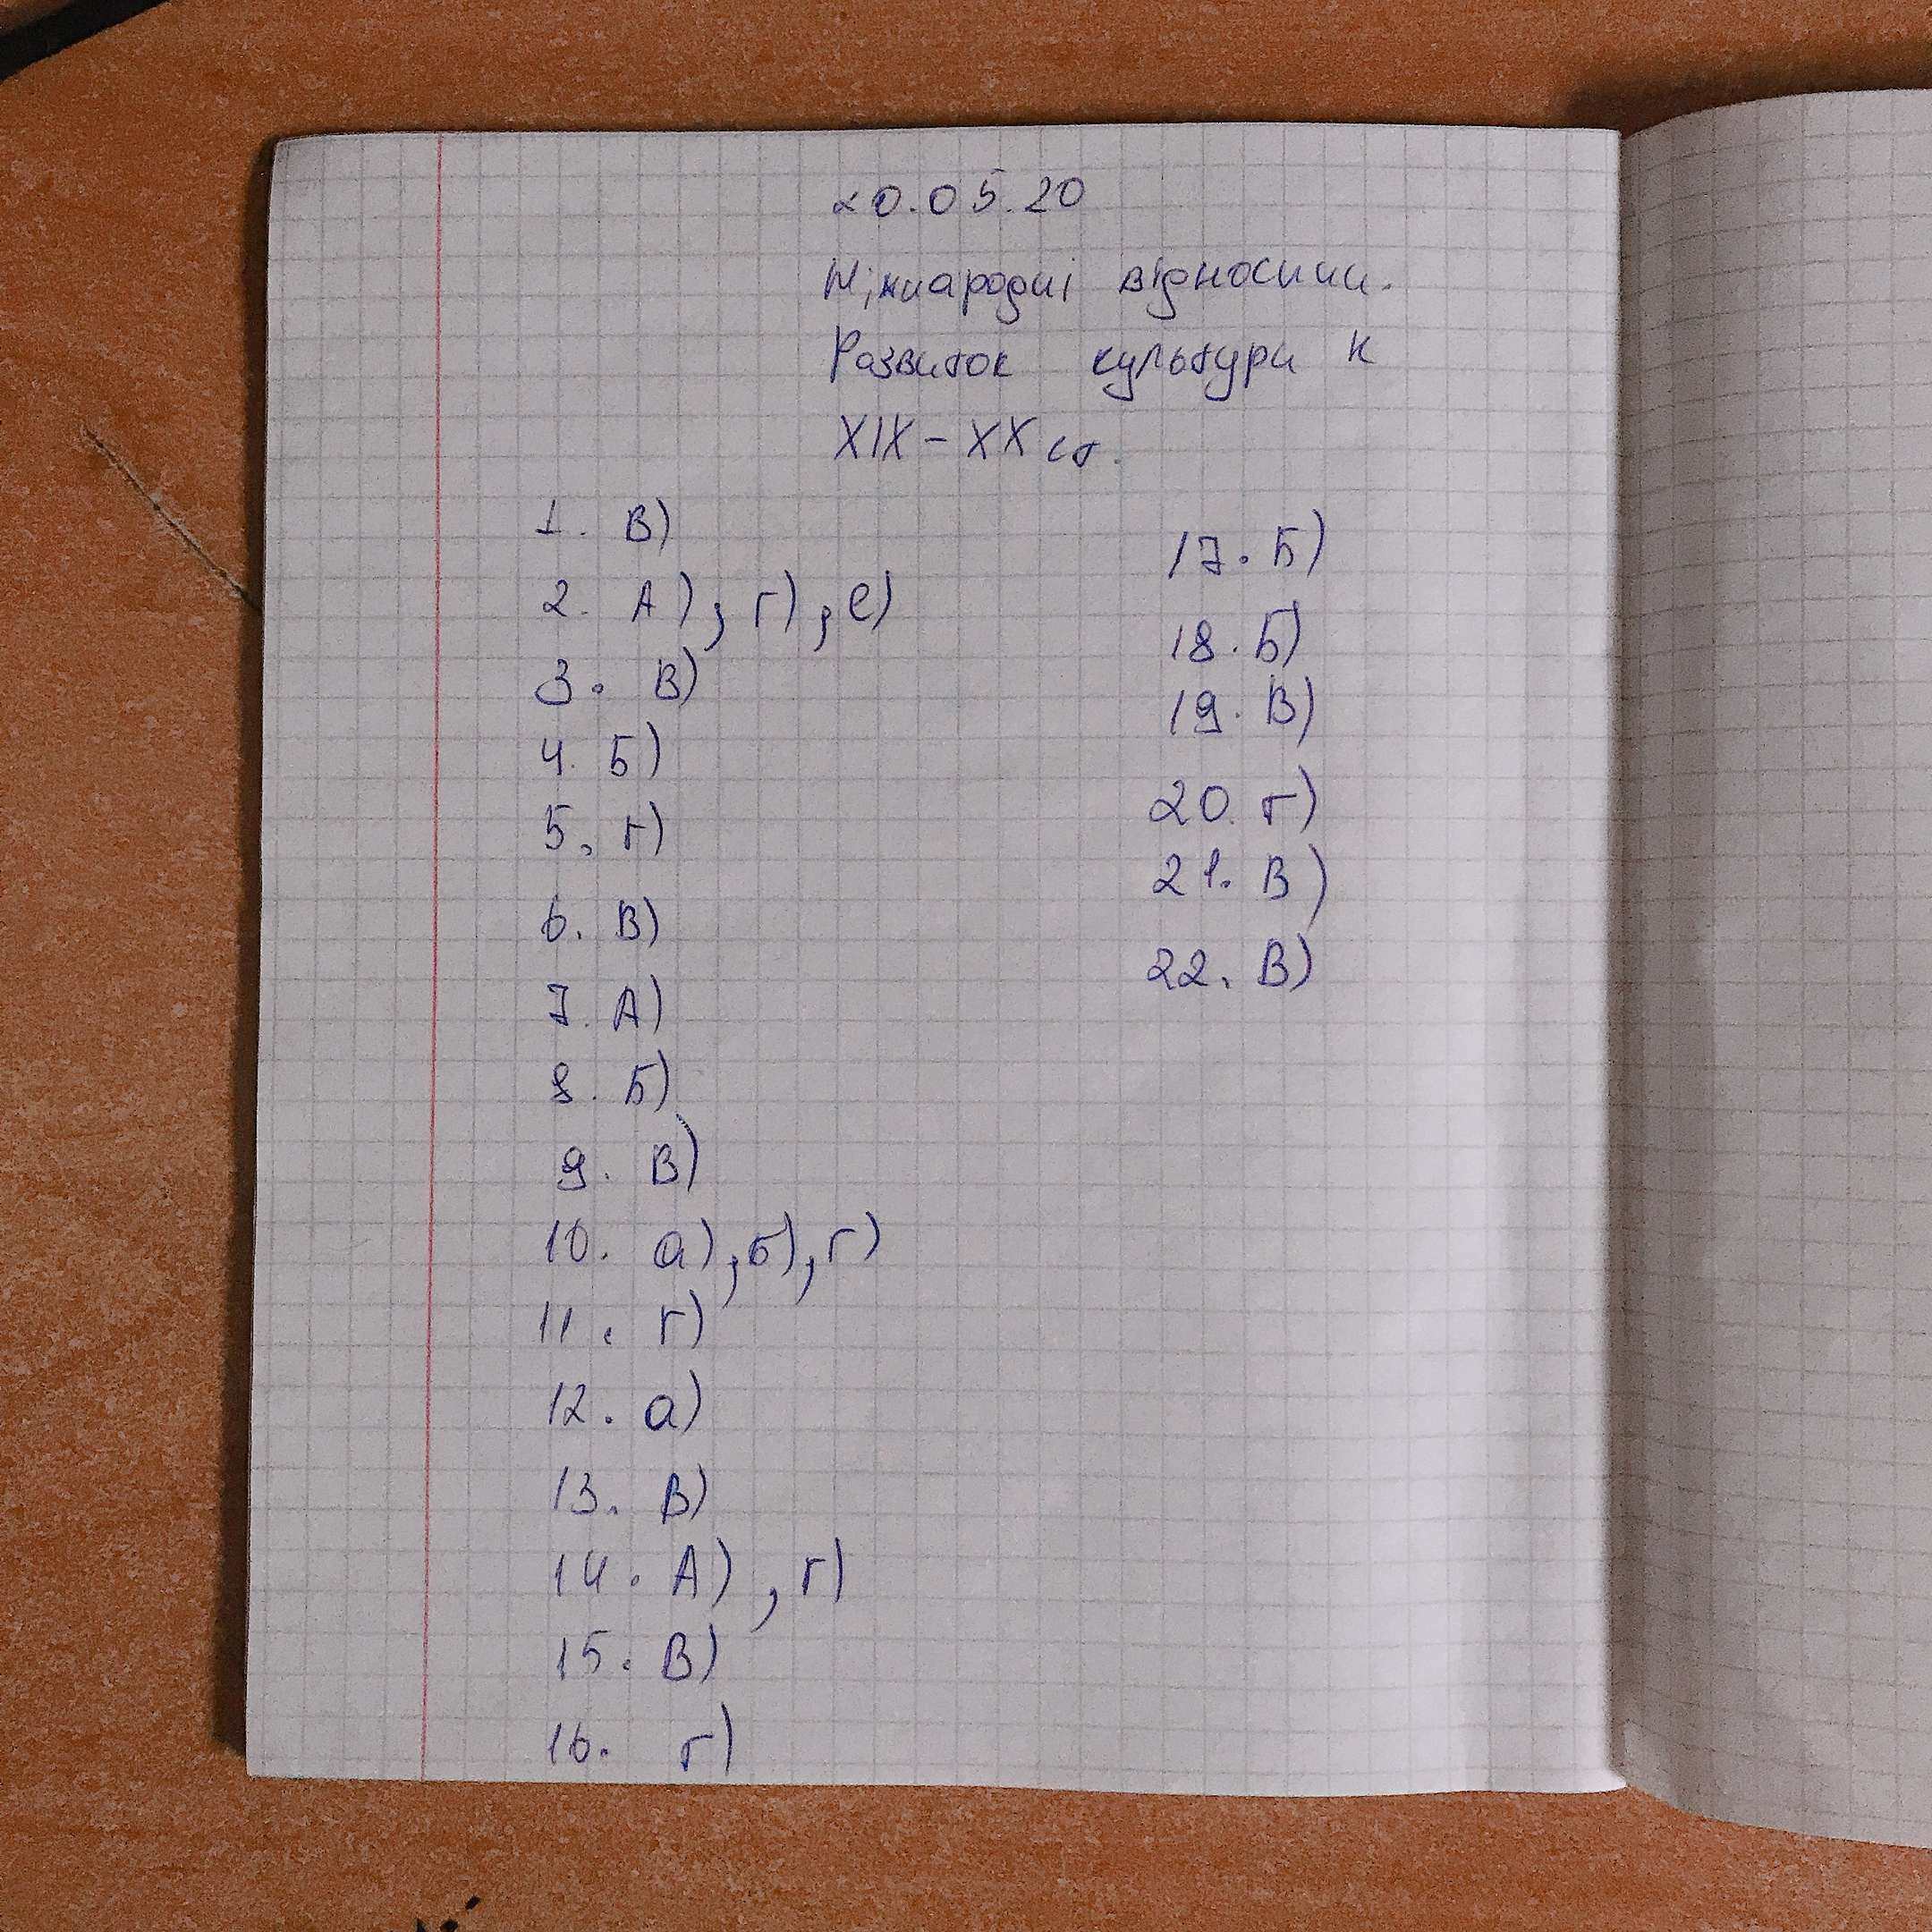 20.05.20
Міжнародні відносини.
Розвиток культури к
XIX - XX ст.
1. В)
2. А), г), е)
3. В)
4. Б)
5. г)
6. В)
7. А)
8. Б)
9. В)
10. а), б), г)
11. г)
12. а)
13. В)
14. А), г)
15. В)
16. г)
17. Б)
18. Б)
19. В)
20. г)
21. В)
22. В)